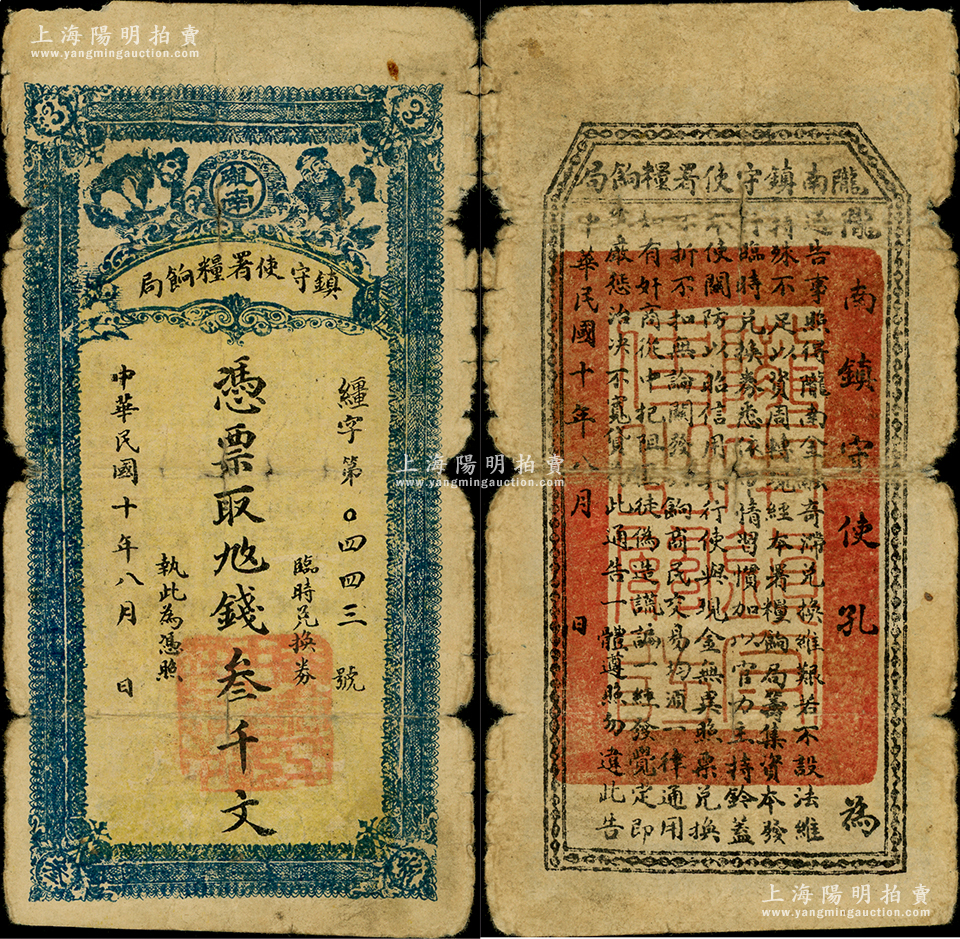 上海陽明拍賣
www.yangmingauction.com
隴南
鎮守使署糧餉局
繮字第〇四四三號
臨時兌換券
憑票取㐌錢叁千文
執此為憑照
中華民國十年八月 日
隴南鎮守使署糧餉局
隴南鎮守使孔 為
告事照得隴南金融奇滯兌換維艱若不設法維
持殊不足以資周轉 經本署糧餉局籌集資本發
行臨時兌換券悉依 情習慣加以官力主持鈐蓋
不使關防以昭信用 行使與現金無異照票兌換
不折不扣無論關發 餉商民交易均須一律通用
有奸商從中把阻 徒偽造謊騙一經發覺定即
嚴懲治决不寬貸 此通告一體遵照勿違此告
中華民國十年八月 日
上海陽明拍賣
www.yangmingauction.com
上海陽明拍賣
www.yangmingauction.com